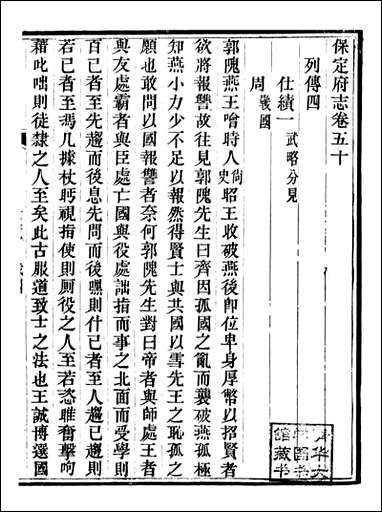 保定府志卷五十
列傳四
仕績一武略分見
周戰國
郭隗燕王噲時人尚史昭王收破燕後卽位卑身厚幣以招賢者
欲將報讐故往見郭隗先生曰齊因孤國之亂而襲破燕孤極
知燕小力少不足以報然得賢士與共國以雪先王之恥孤之
願也敢問以國報讐者奈何郭隗先生對曰帝者與師處王者
與友處霸者與臣處亡國與役處詘指而事之北面而受學則
百己者至先趨而後息先問而後嘿則什己者至人趨己趨則
若己者至馮几據杖眄視指使則厮役之人至若恣睢奮擊呴
藉叱咄則徒隸之人至矣此古服道致士之法也王誠博選國